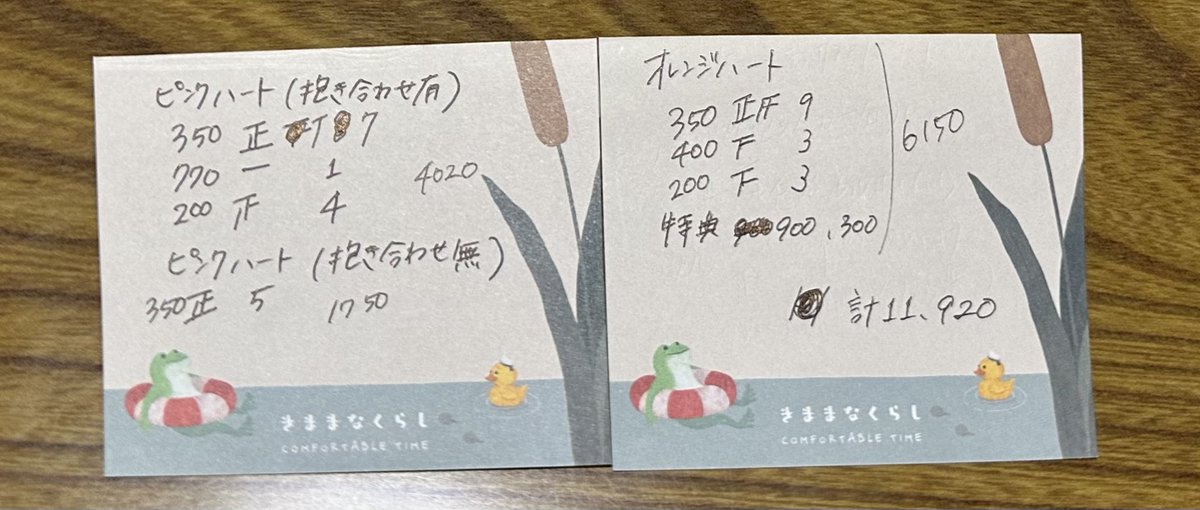 ピンクハート(抱き合わせ有)
350 正 丅 7
770 一 1
4020
200 正 4
ピンクハート(抱き合わせ無)
350 正 5 1750
きままなくらし
COMFORTABLE TIME
オレンジハート
350 正正 9
400 下 3
200 下 3
6150
特典 900、300
計11、920
きままなくらし
COMFORTABLE TIME